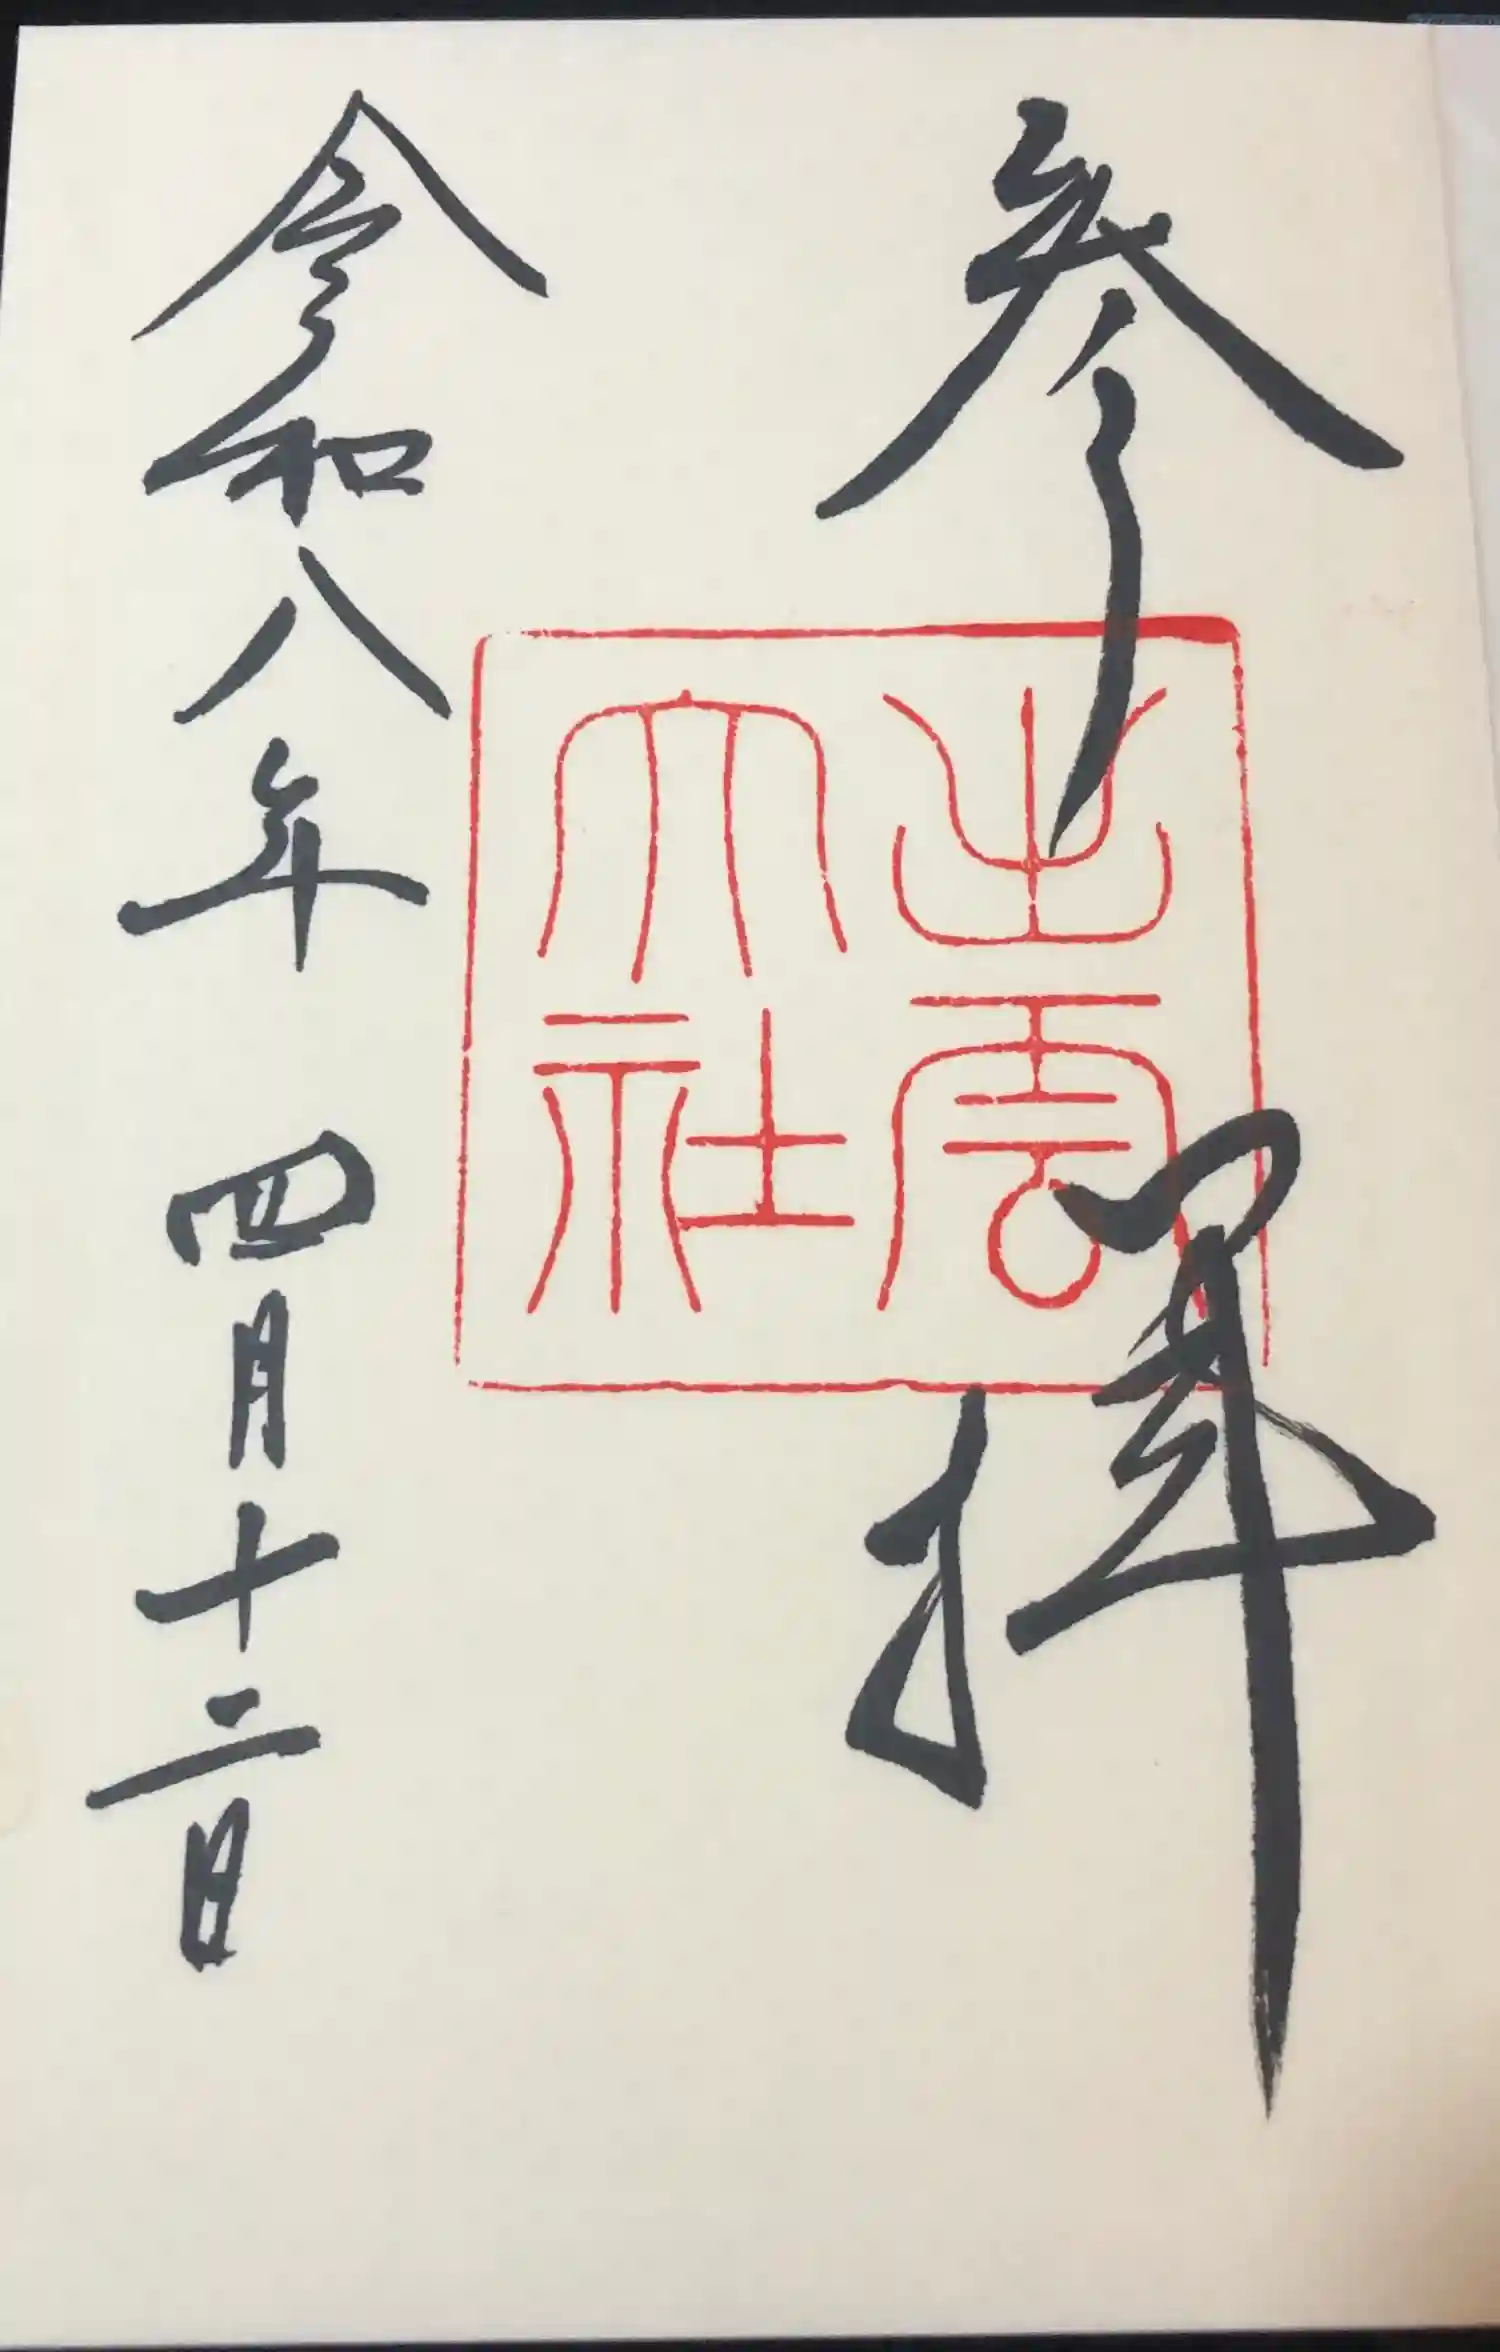 参拝
出雲
大社
令和八年 四月十二日